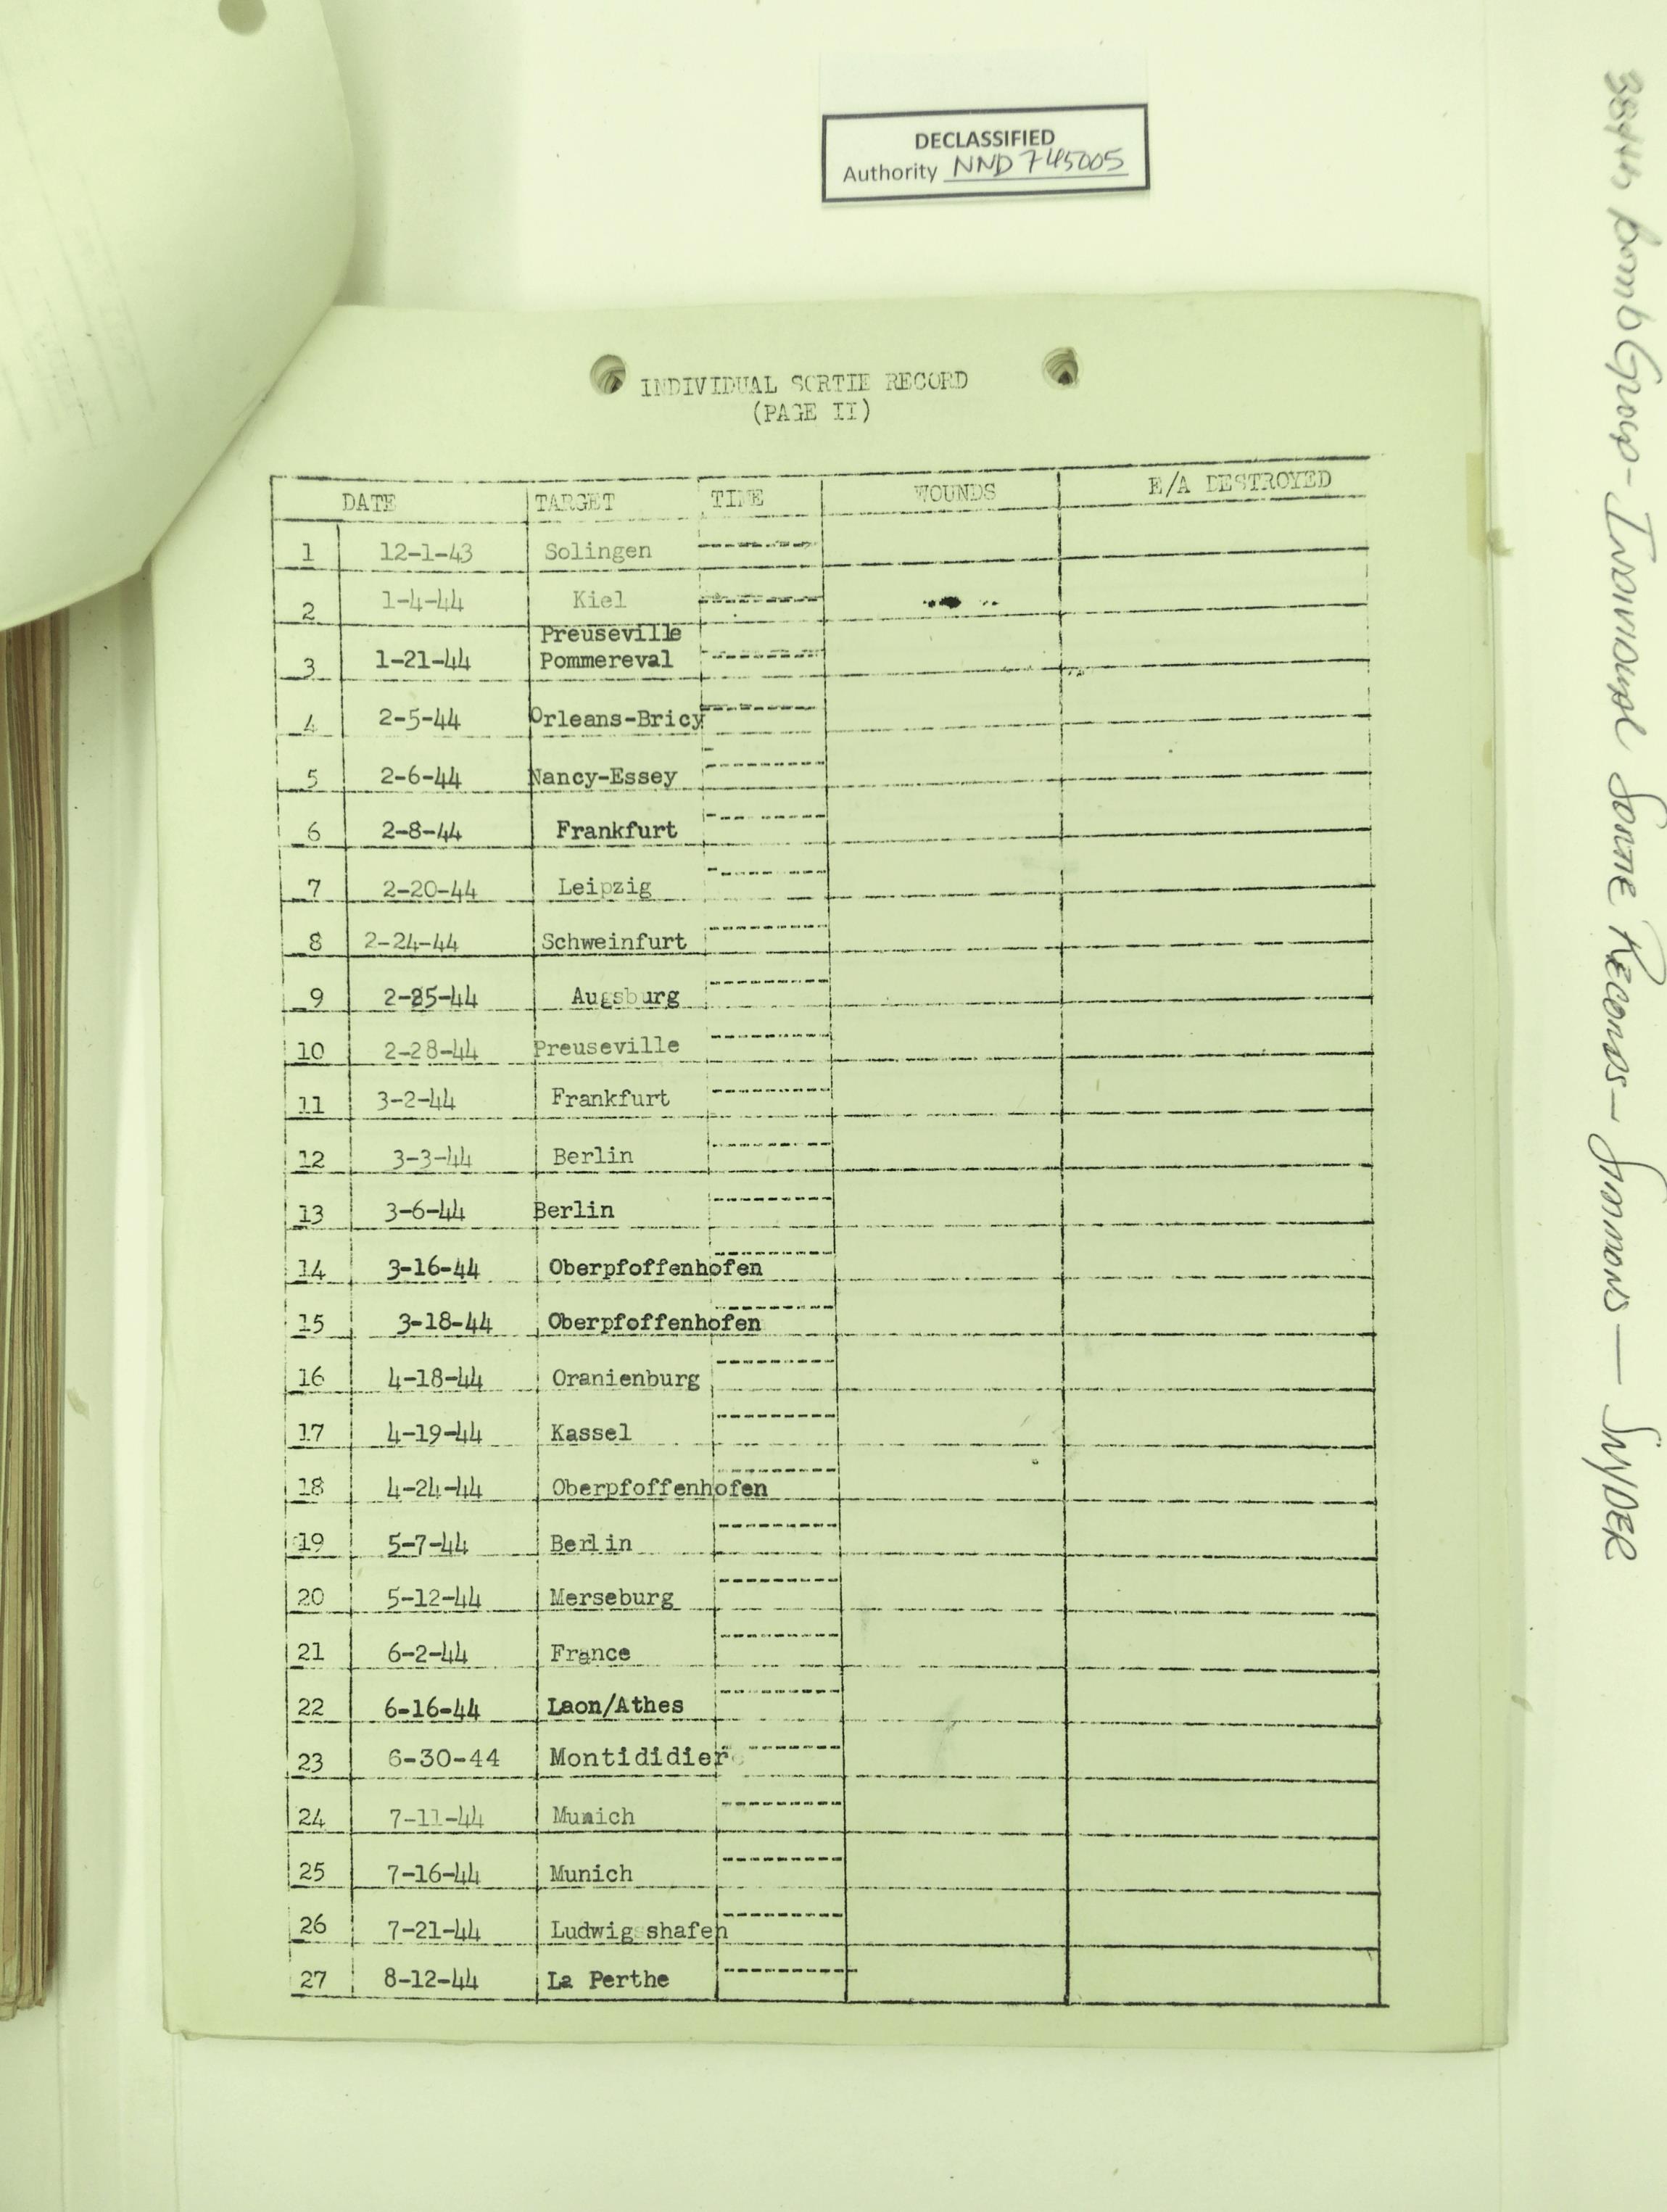 DECLASSIFIED
Authority NND 745005
INDIVIDUAL SORTIE RECORD
(PAGE II)
DATE TARGET TIME WOUNDS E/A DESTROYED
1 12-1-43 Solingen ----------
2 1-4-44 Kiel ----------
Preuseville
3 1-21-44 Pommereval ----------
4 2-5-44 Orleans-Bricy ----------
5 2-6-44 Nancy-Essey ----------
6 2-8-44 Frankfurt ----------
7 2-20-44 Leipzig ----------
8 2-24-44 Schweinfurt ----------
9 2-25-44 Augsburg ----------
10 2-28-44 Preuseville ----------
11 3-2-44 Frankfurt ----------
12 3-3-44 Berlin ----------
13 3-6-44 Berlin ----------
14 3-16-44 Oberpfoffenhofen ----------
15 3-18-44 Oberpfoffenhofen ----------
16 4-18-44 Oranienburg ----------
17 4-19-44 Kassel ----------
18 4-24-44 Oberpfoffenhofen ----------
19 5-7-44 Berlin ----------
20 5-12-44 Merseburg ----------
21 6-2-44 France ----------
22 6-16-44 Laon/Athes ----------
23 6-30-44 Montididier ----------
24 7-11-44 Munich ----------
25 7-16-44 Munich ----------
26 7-21-44 Ludwigsshafen ----------
27 8-12-44 La Perthe ----------
384th Bomb Group - Individual Sortie Records - Simmons - Snyder